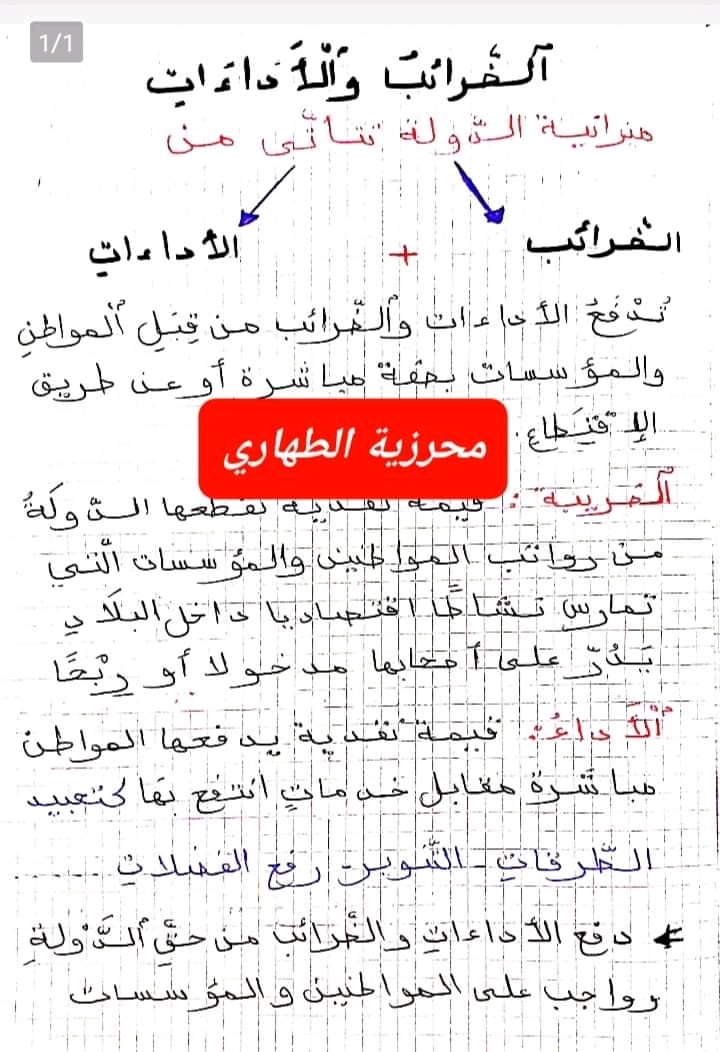 1/1
الضّرائبُ والْأَدَاءَاتِ
ميزانية الدّولة تتأتّى من
الضّرائب + الأداءاتِ
تُدْفَعُ الأداءات والضّرائب من قِبَلِ المواطنِ
والمؤسسات بصفة مباشرة أو عن طريق
الإقتِطاع.
محرزية الطهاري
الضريبة: قيمة نقدية تقطعها الدّولَةُ
من رواتب المواطنين والمؤسسات الّتي
تمارس نشاطًا اقتصاديا داخل البلادِ
يَدُرّ على أصحابها مدخولا أو رِبْحًا
الْأَداءُ: قيمة نقدية يدفعها المواطن
مباشرة مقابل خدماتٍ انتفع بها كتعبيد
الطّرقاتِ - التّنوير - رفع الفضلاتِ ......
← دفع الأداءاتِ والضّرائب من حقّ الدّولةِ
وواجب على المواطنين والمؤسسات